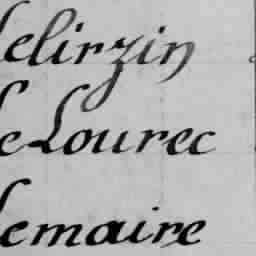 Lelirzin
Le Lourec
Lemaire